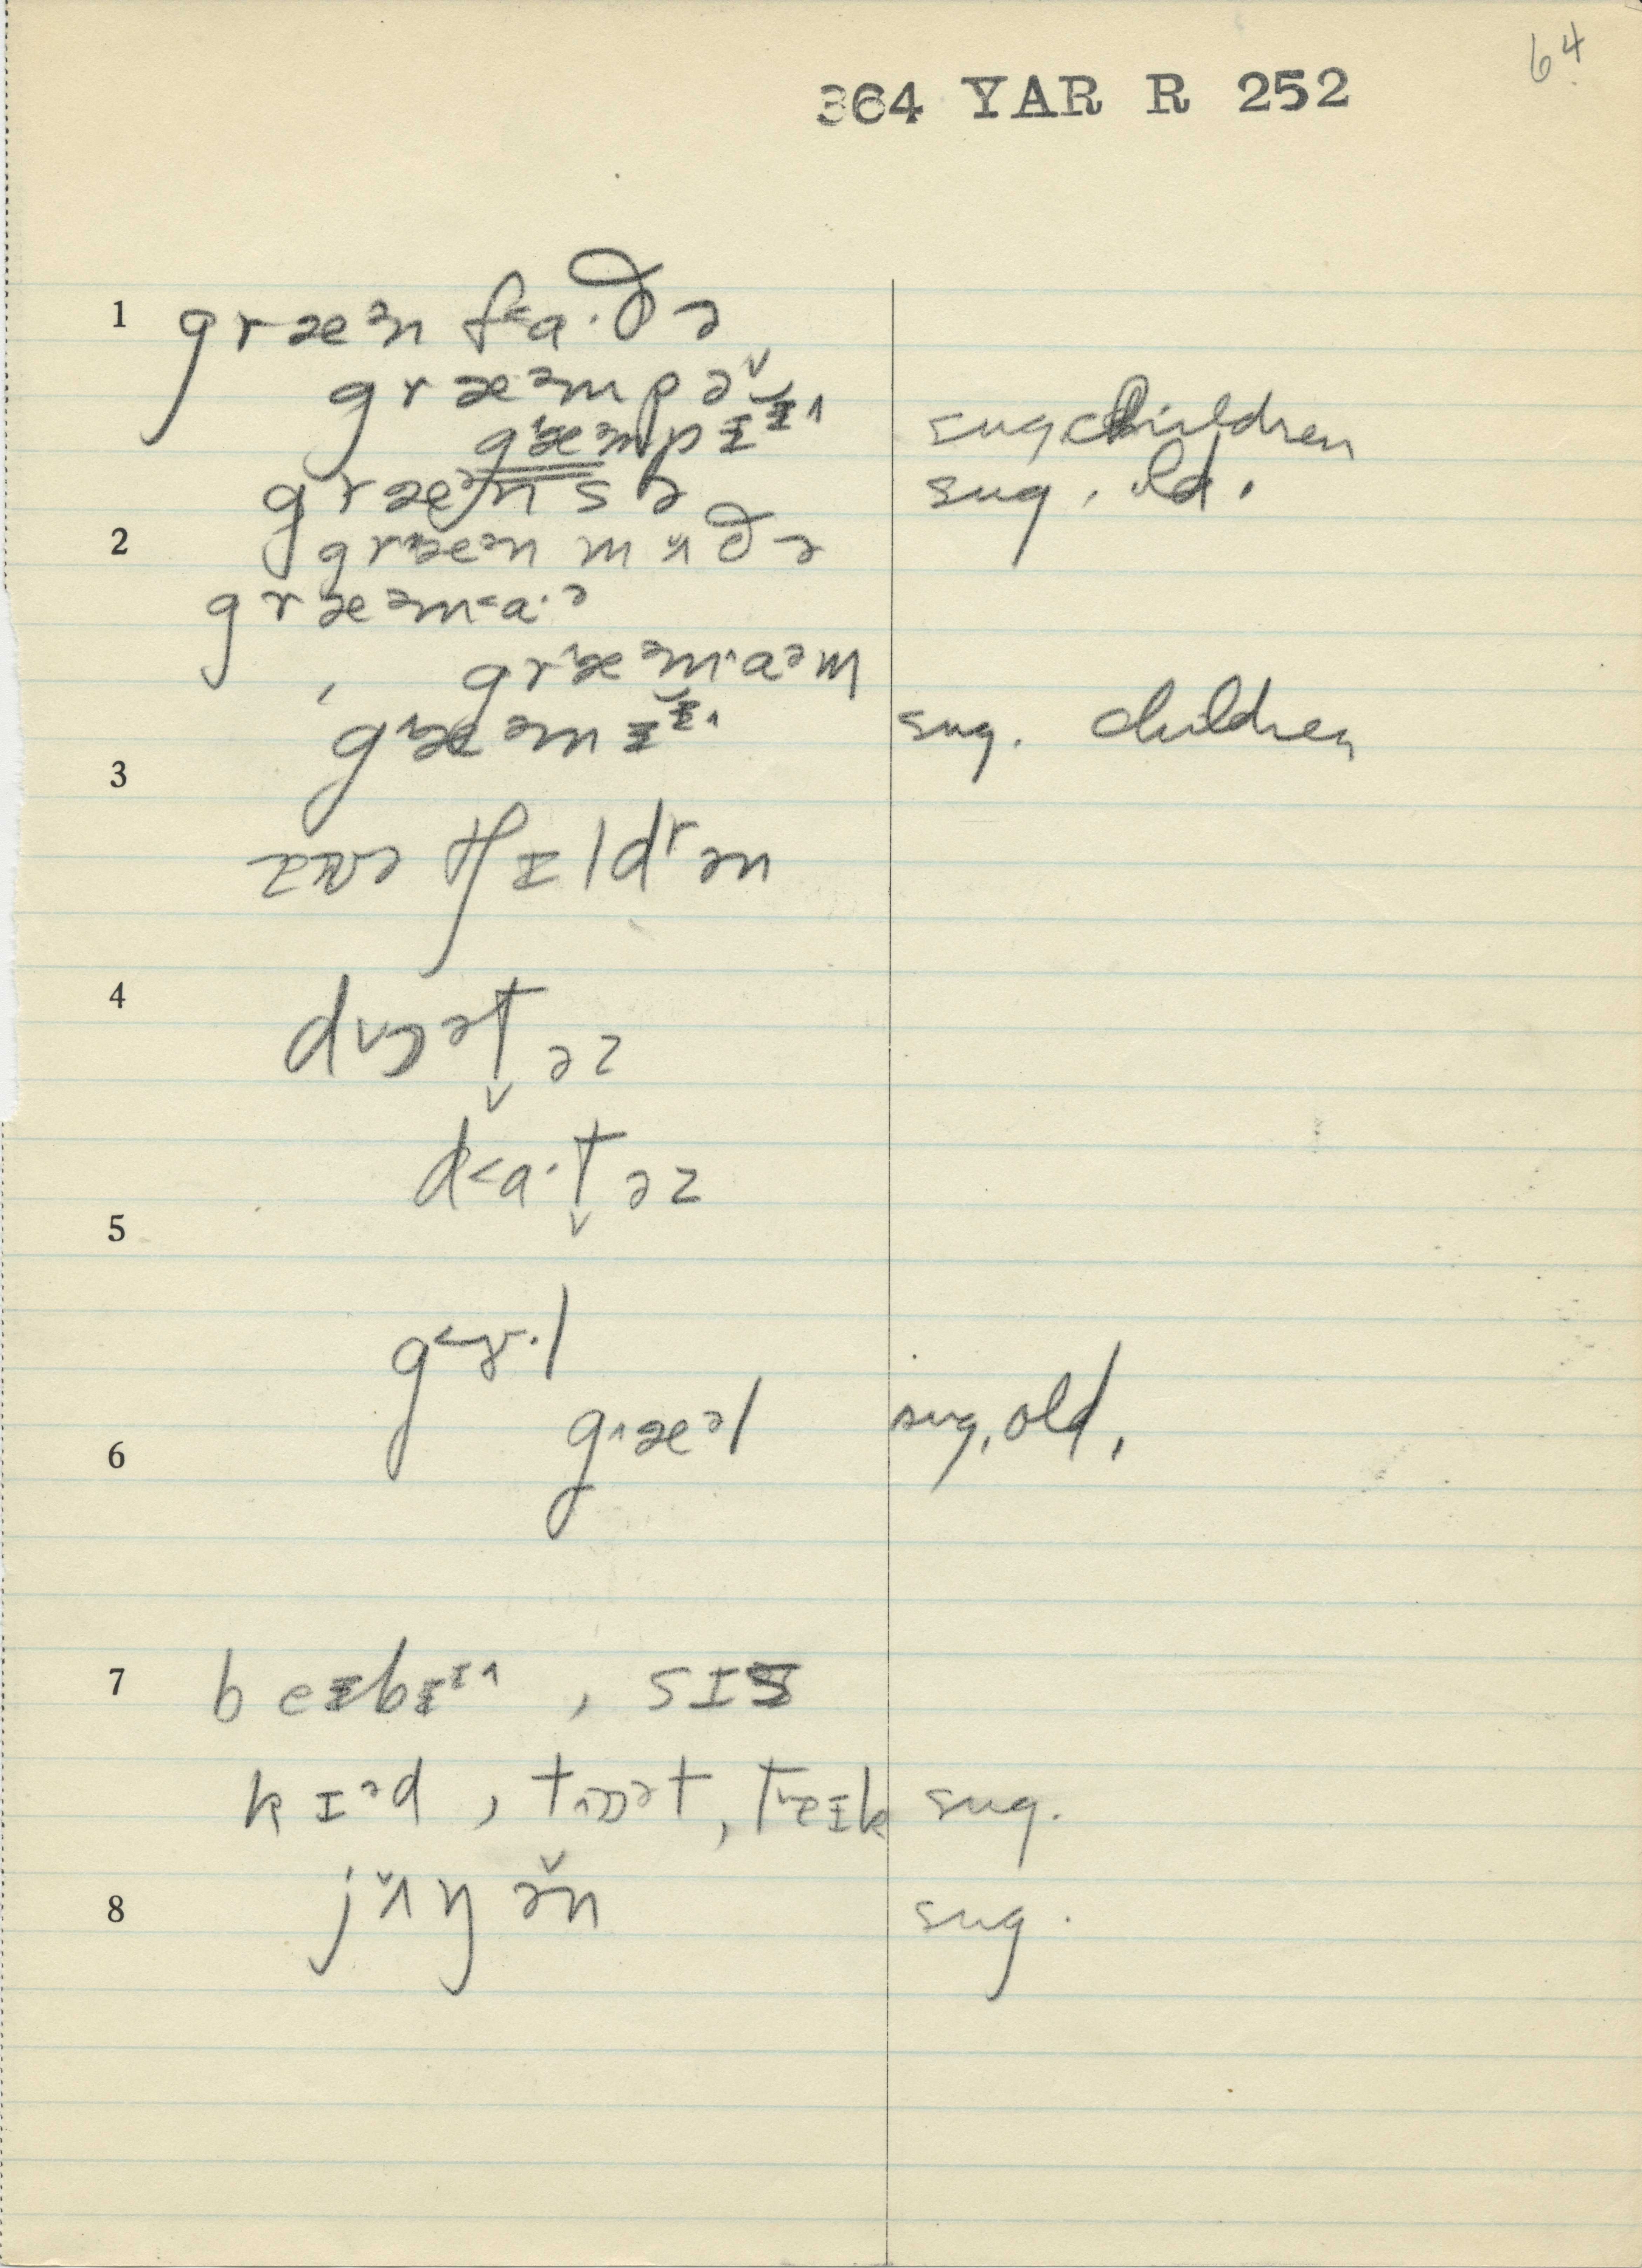 64
364 YAR R 252
1 græᵊn f˂a·ðə
græᵊmpə˅ sug. children
g˄æᵊmpɪɪ˄
græᵊnsə sug. old.
2 græᵊn mʌðə
græᵊm˂a·ᵊ
, gr˄æᵊm˄aᵊm
g˄æᵊmɪɪ˄ sug. children
3
tʃɪldʳən
4 d˅ɔᵊt̬əz
d˂a·t̬əz
5
g˂ɝ·l
6 g˄æᵊl sug, old,
7 beɪbɪᶦ˄ , sɪs
kɪᵊd , t˄ɒᵊt , t˅eɪk sug.
8 jʌŋən sug.